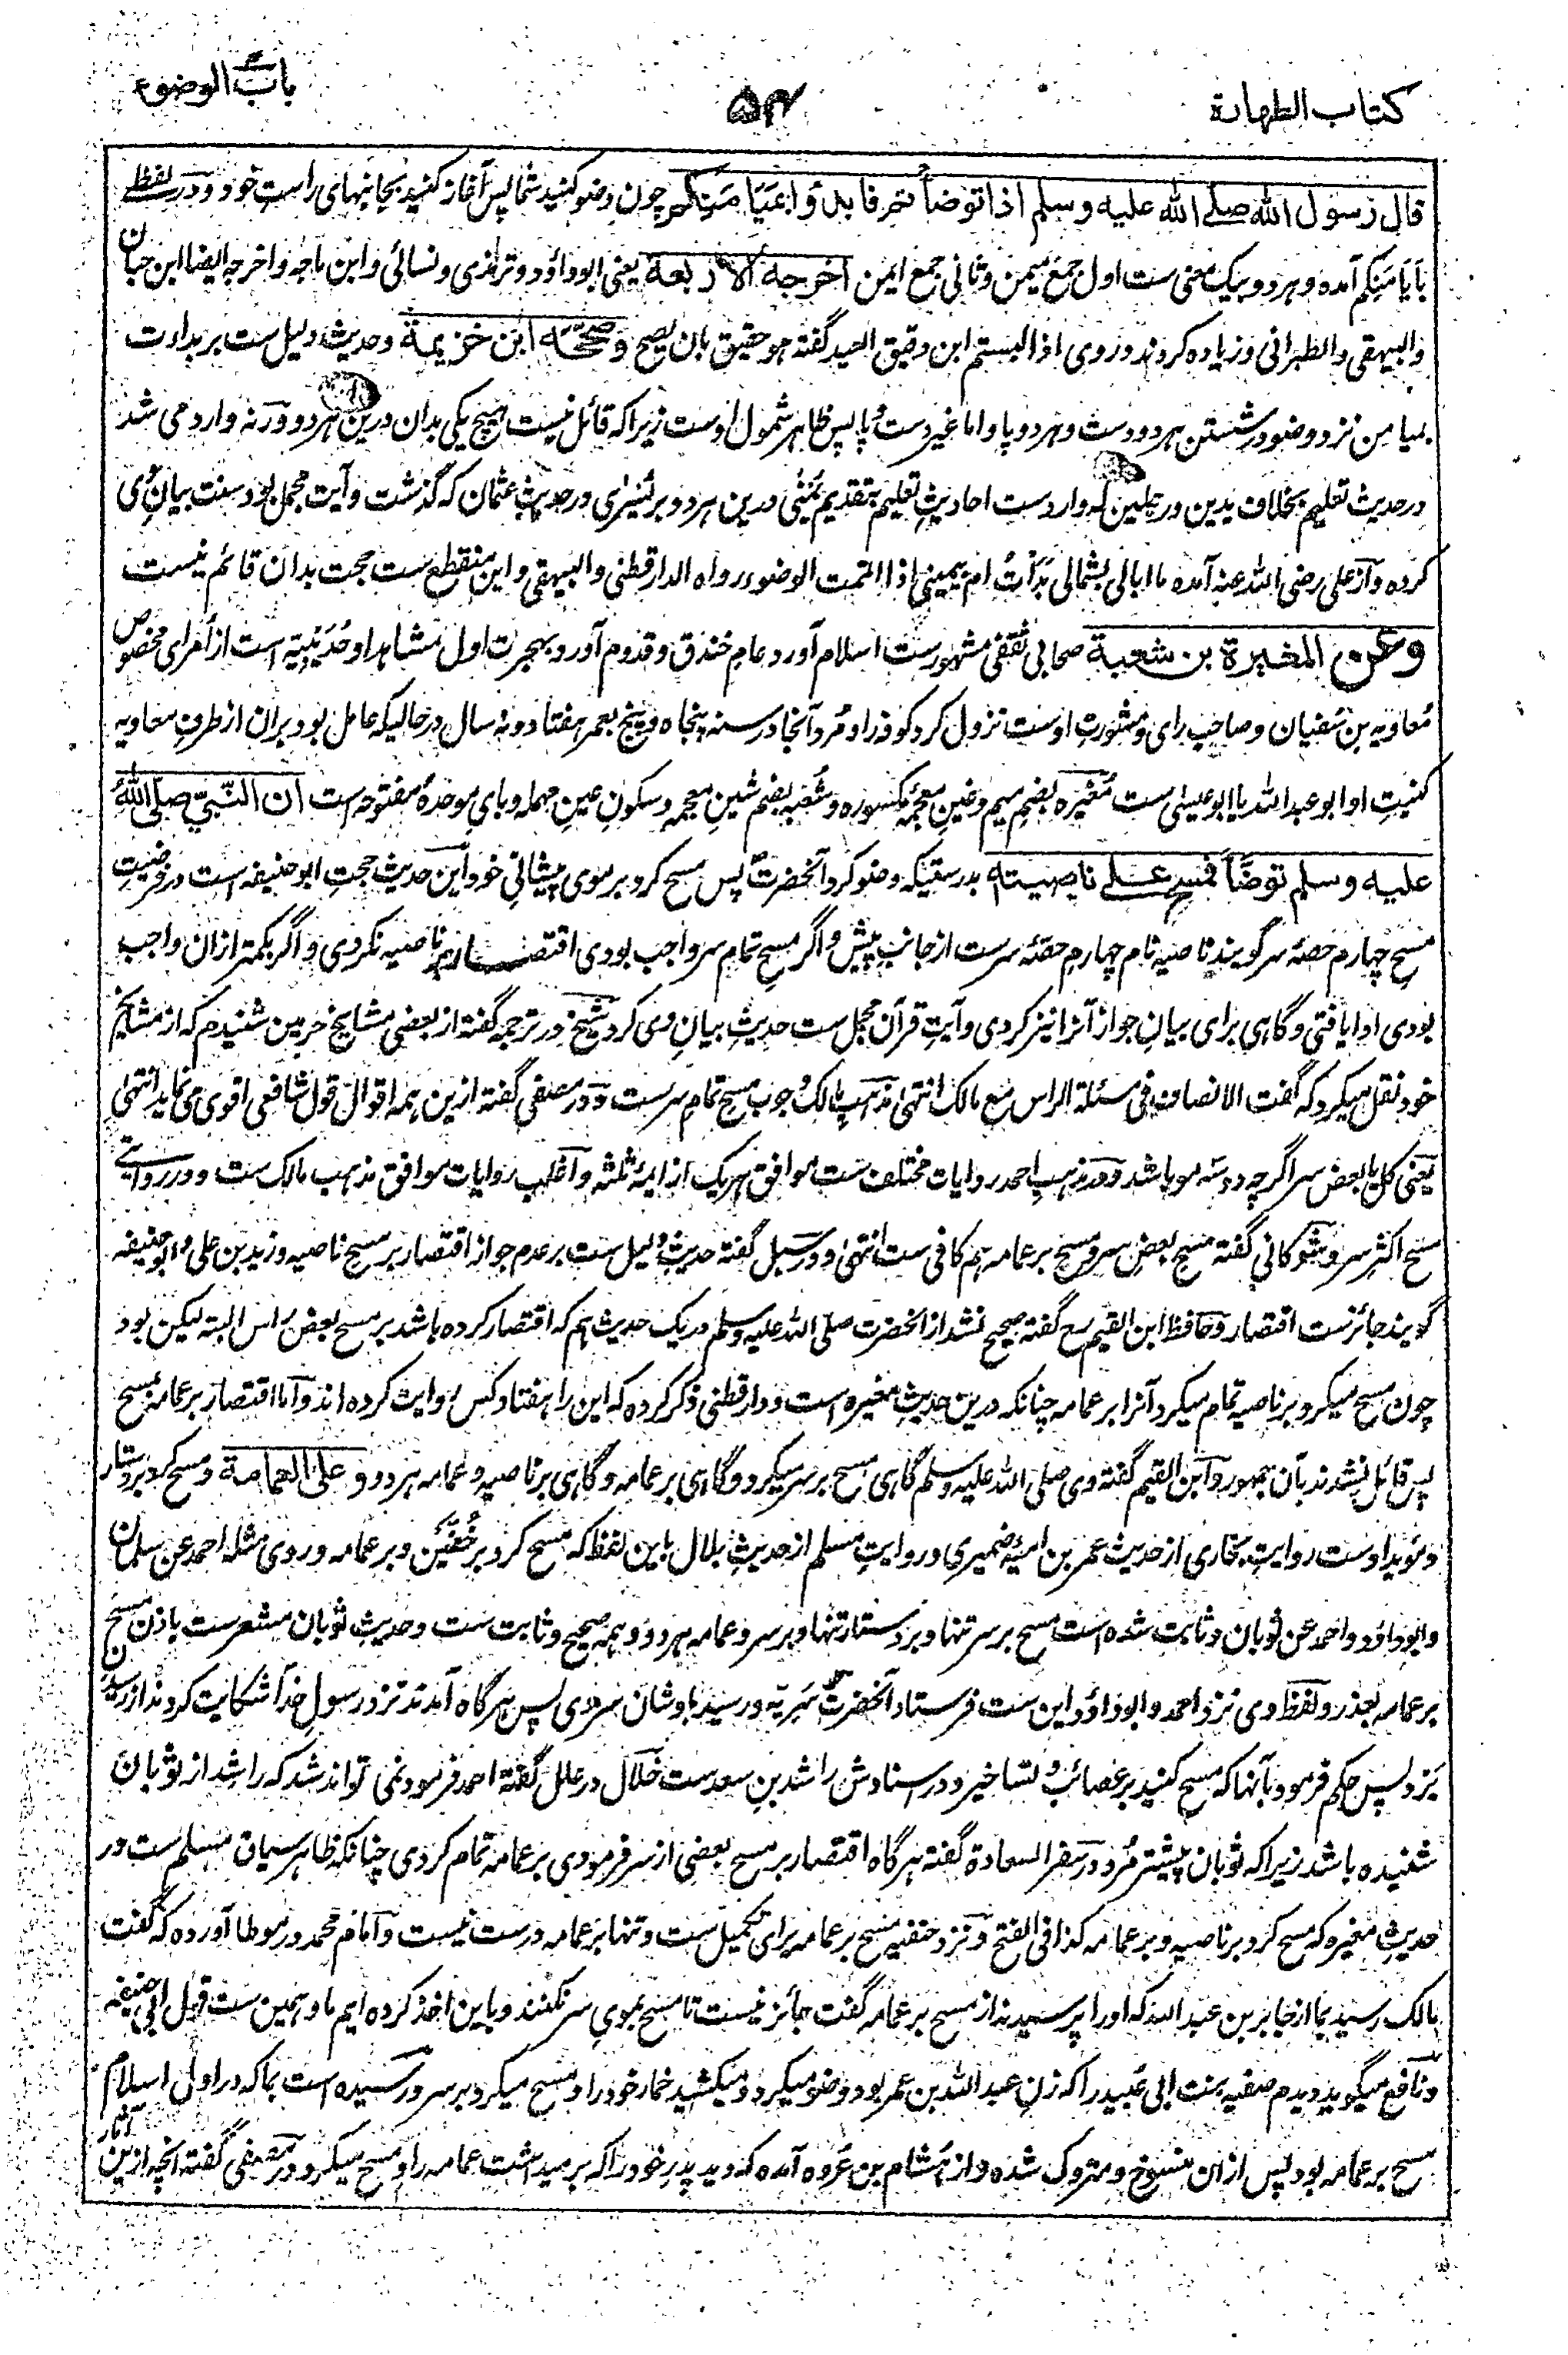 کتاب الطهارة
۵۴
باب الوضوء
قال رسول الله صلے الله علیه وسلم اذا توضأتم فابدؤا بمیامنکم چون وضو کنید شما پس آغاز کنید بجانبهای راست خود و در لفظے
بأیامنکم آمده و هر دو بیک معنی ست اول جمع میمن و ثانی جمع ایمن اخرجه الاربعة یعنی ابوداؤد و ترمذی و نسائی و ابن ماجه و اخرجه ایضا ابن حبان
والبیهقی والطبرانی و زیاده کردند و روی اذا لبستم ابن دقیق العید گفته هو حقیق بان یصح وصححه ابن خزیمة و حدیث دلیل ست بر بداءت
بمیامن نزد وضو در شستن هر دو دست و هر دو پا و اما غیر دست و پا پس ظاهر شمول اوست زیرا که قائل نیست هیچ یکی بدان درین هر دو و ورنه وارد می شد
در حدیث تعلیم بخلاف یدین و رجلین که وارد ست احادیث تعلیم بتقدیم یمنٰی درین هر دو بر یسرٰی در حدیث عثمان که گذشت و آیت مجمل بود سنت بیان وی
کرده و از علی رضی الله عنه آمده ما ابالی بشمالی بدأت ام بیمینی اذا اتممت الوضوء رواه الدارقطنی والبیهقی و این منقطع ست حجت بدان قائم نیست
وعن المغیرة بن شعبة صحابی ثقفی مشهور ست اسلام آورد عام خندق و قدوم آورد بهجرت اول مشاهد او حدیبیه است از امرای مخصوص
معاویه بن سفیان و صاحب رای و مشورت اوست نزول کرد کوفه را و مرد آنجا در سنه پنجاه و پنج بعمر هفتاد و نه سال در حالیکه عامل بود بران از طرف معاویه
کنیت او ابو عبدالله یا ابو عیسٰی ست مغیره بضم میم و غین معجمۀ مکسوره و شعبه بضم شین معجمه و سکون عین مهمله و بای موحدۀ مفتوحه است ان النبی صلی الله
علیه وسلم توضأ فمسح علے ناصیته بدرستیکه وضو کرد آنحضرت پس مسح کرد بر موی پیشانی خود این حدیث حجت ابو حنیفه است در فرضیت
مسح چهارم حصۀ سر گویند ناصیه نام چهارم حصۀ سرست از جانب پیش و اگر مسح تمام سر واجب بودی اقتصار بر ناصیه نکردی و اگر بکمتر ازان واجب
بودی ادا یافتی و گاهی برای بیان جواز آنرا نیز کردی و آیت قرآن مجمل ست حدیث بیان وی کرد شیخ در ترجمه گفته از بعضی مشایخ حرمین شنیدم که از مشایخ
خود نقل میکرد که گفت الانصاف فی مسئلة الراس مع مالک انتهٰی مذهب مالک وجوب مسح تمام سر ست و در مصفی گفته ازین همه اقوال قول شافعی اقوی می نماید انتهٰی
یعنی کل یا بعض سر اگرچه دو سه مو باشد و در مذهب احمد روایات مختلف ست موافق هر یک از ایمۀ ثلثه و اغلب روایات موافق مذهب مالک ست و در روایتے
مسح اکثر سر و شوکانی گفته مسح بعض سر و مسح بر عمامه هم کافی ست انتهٰی و در سبل گفته حدیث دلیل ست بر عدم جواز اقتصار بر مسح ناصیه و زید بن علی و ابو حنیفه
گویند جائزست اقتصار و حافظ ابن القیم رح گفته صحیح نشد از آنحضرت صلی الله علیه وسلم در یک حدیث هم که اقتصار کرده باشد بر مسح بعض راس البته لیکن بود
چون مسح میکرد بر ناصیه تمام میکرد آنرا بر عمامه چنانکه درین حدیث مغیره است و دارقطنی ذکر کرده که این را هفتاد کس روایت کرده اند و اما اقتصار بر عمامه مسح
پس قائل نشدند بآن جمهور و ابن القیم گفته وی صلی الله علیه وسلم گاهی مسح بر سر میکرد و گاهی بر عمامه و گاهی بر ناصیه و عمامه هر دو وعلی العمامة و مسح کرد بر دستار
و مؤید اوست روایت بخاری از حدیث عمر بن امیۀ ضمیری و روایت مسلم از حدیث بلال باین لفظ که مسح کرد بر خفین و بر عمامه و روی مثله احمد عن سلمان
وابوداؤد و احمد عن ثوبان و ثابت شده است مسح بر سر تنها و بر دستار تنها و بر سر و عمامه هر دو و همه صحیح و ثابت ست و حدیث ثوبان مشعرست باذن مسح
بر عمامه بعذر و لفظ وی نزد احمد و ابوداؤد این ست فرستاد آنحضرت سریه و رسید باوشان سردی پس هرگاه آمدند نزد رسول خدا شکایت کردند از رسیدن
برد پس حکم فرمود بآنها که مسح کنید بر عصائب و تساخین و در اسنادش راشد بن سعدست خلال در علل گفته احمد فرمود نمی تواند شد که راشد از ثوبان
شنیده باشد زیرا که ثوبان پیشتر مرد و در سفر السعادة گفته هرگاه اقتصار بر مسح بعضی از سر فرمودی بر عمامه تمام کردی چنانکه ظاهر سیاق مسلم ست در
حدیث مغیره که مسح کرد بر ناصیه و بر عمامه کذا فی الفتح و نزد حنفیه مسح بر عمامه برای تکمیل ست و تنها بر عمامه درست نیست و امام محمد در موطا آورده که گفت
مالک رسید بما از جابر بن عبدالله که او را پرسیدند از مسح بر عمامه گفت جائز نیست تا مسح بموی سر نکنند و باین اخذ کرده ایم ما و همین ست قول ابی حنیفه
و نافع میگوید دیدم صفیه بنت ابی عبید را که زن عبدالله بن عمر بود وضو میکرد و میکشید خمار خود را و مسح میکرد بر سر و رسیده است بما که در اول اسلام
مسح بر عمامه بود پس ازان منسوخ و متروک شده و از هشام بن عروه آمده که دید پدر خود را که بر میداشت عمامه را و مسح میکرد و در مصفی گفته آنچه ازین آثار